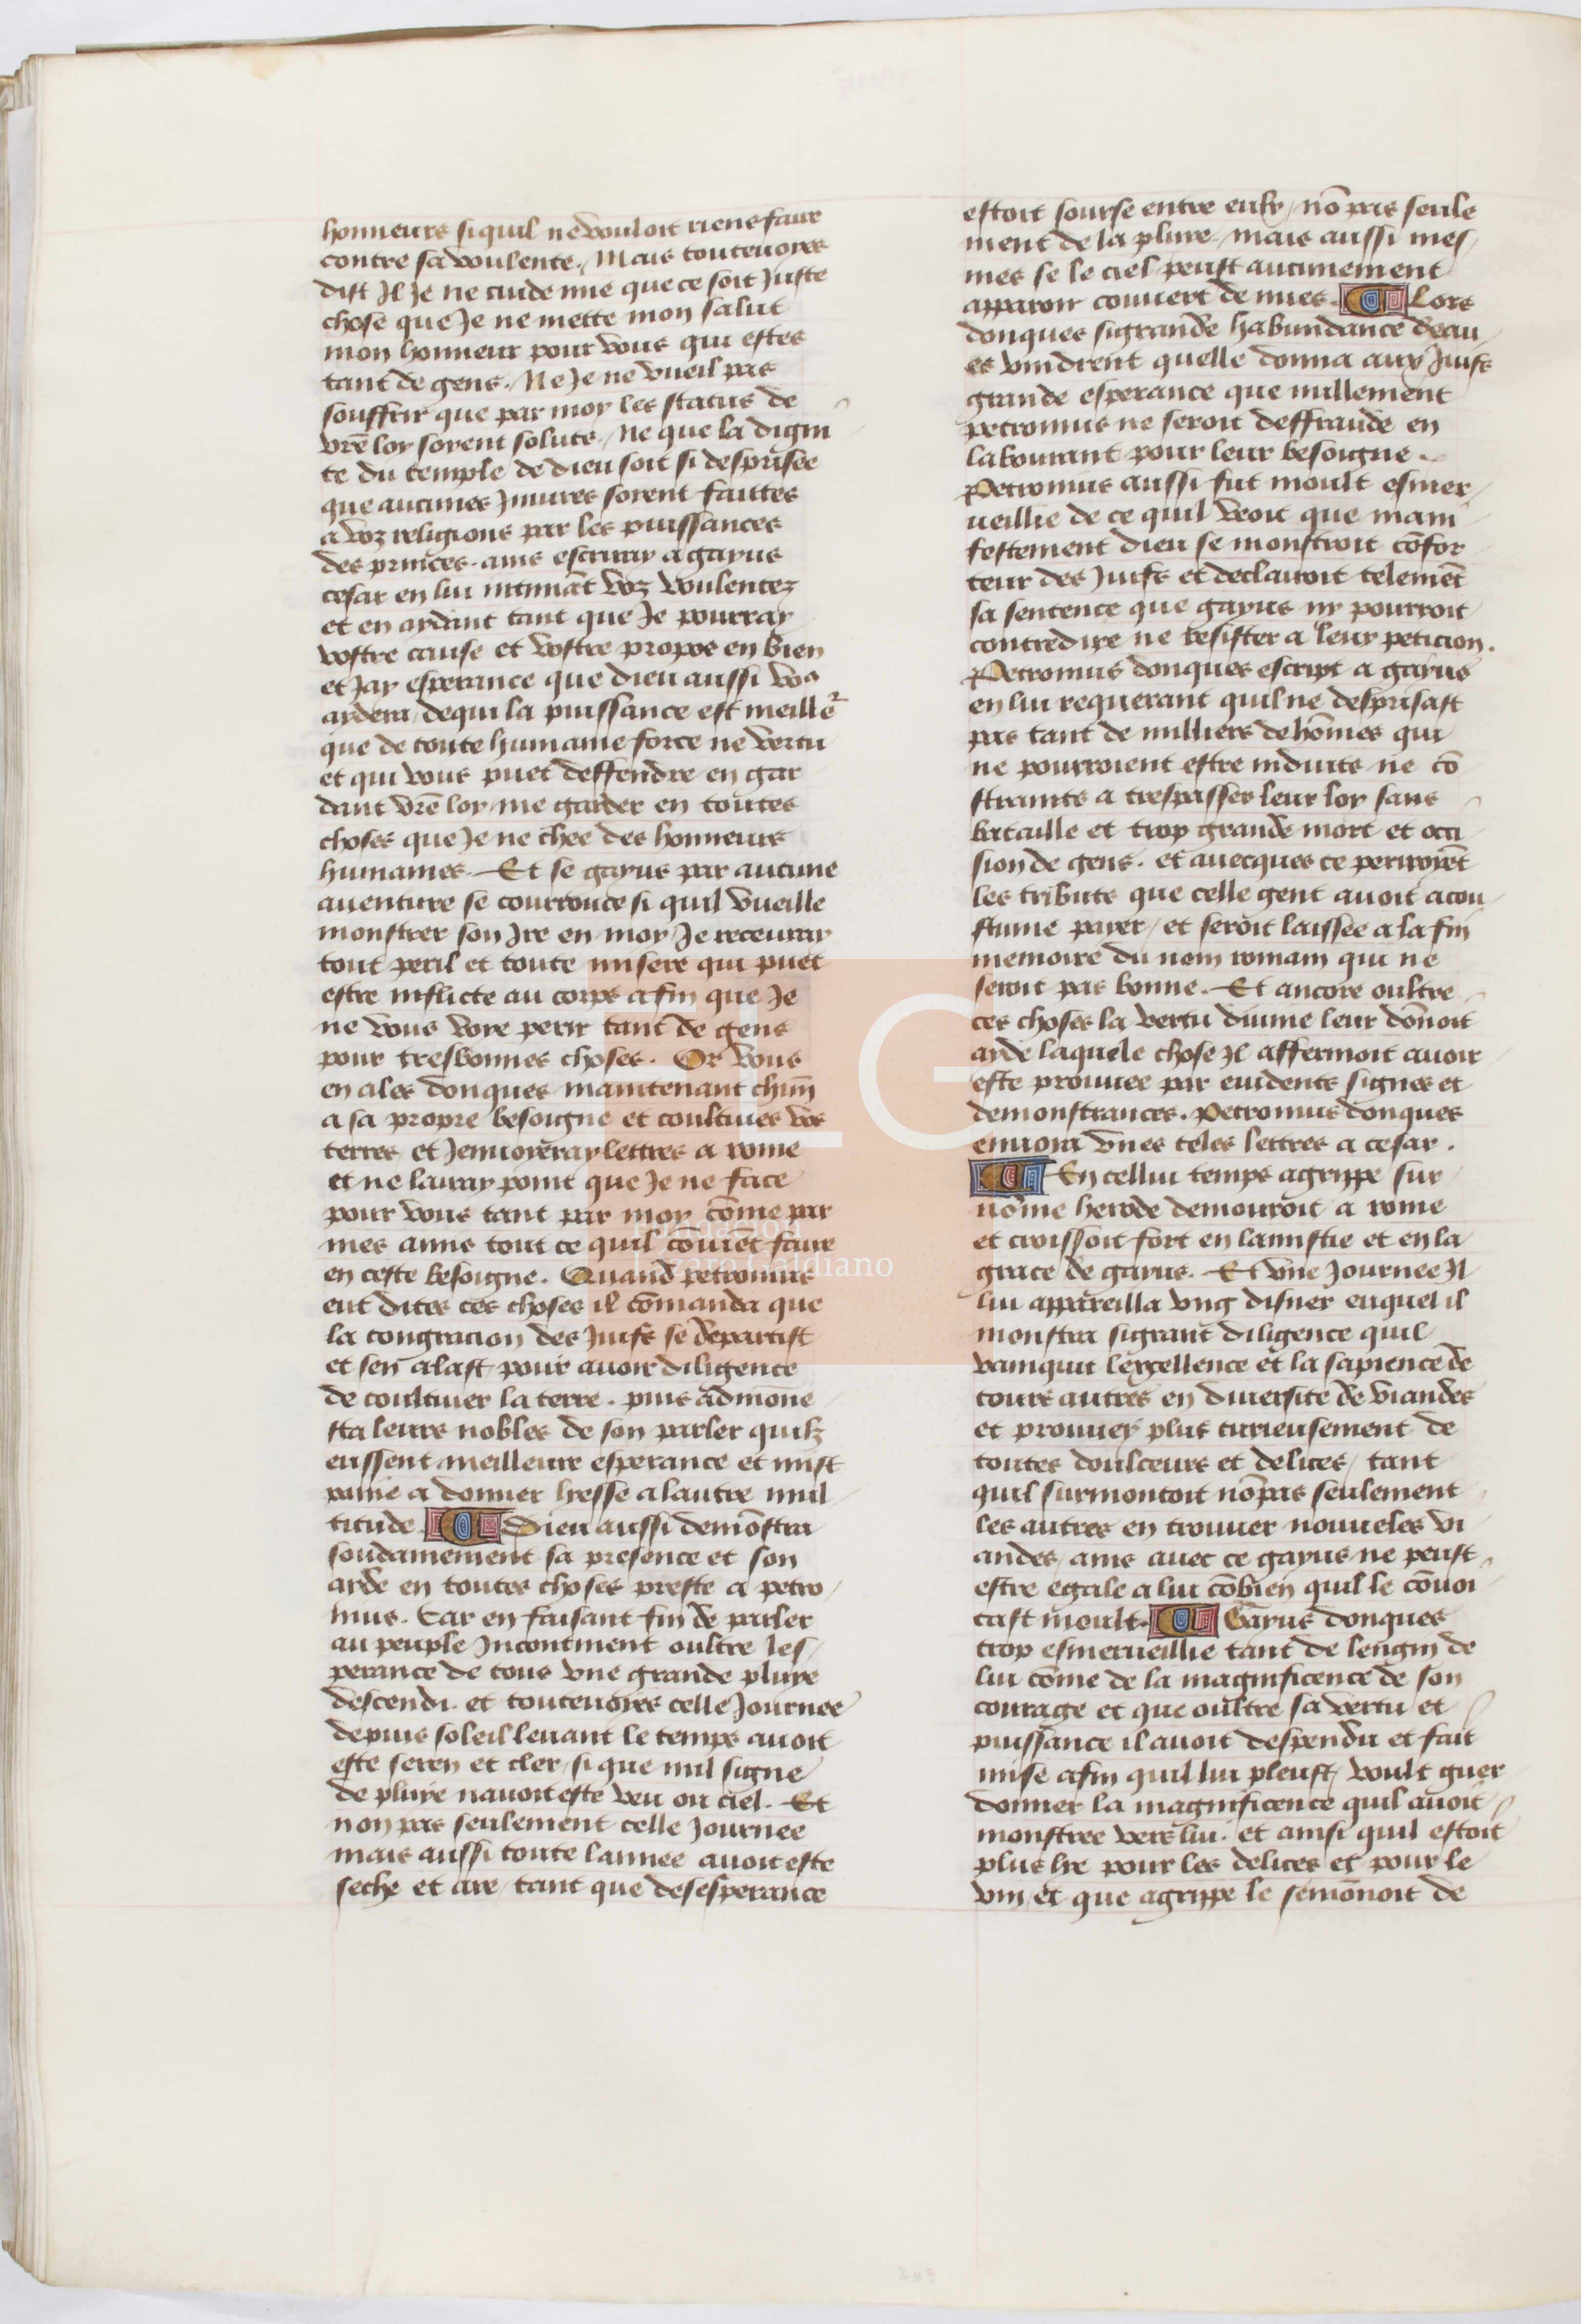 honneurs si quil ne vouloit riens faire
contre sa voulente. Mais toutevoyes
dist Il Je ne cuide mie que ce soit Juste
chose que Je ne mette mon salut
mon honneur pour vous qui estes
tant de gens. Ne Je ne vueil pas
souffrir que par moy les status de
vr̄e loy soyent soluts. Ne que la digni
te du temple de dieu soit si desprisee
que aucunes Iniures soient faittes
a voz religions par les puissances
des princes. ains escriray a gayus
cesar en lui intimāt voz voulentez
et en aydant tant que Je pourray
vostre cause et vostre propos en bien
et Jay esperance que dieu aussi vo9
aydera de qui la puissance est meille᷑
que de toute humaine force ne vertu
et qui vous puet deffendre en gar
dant vr̄e loy me garder en toutes
choses que Je ne chee des honneurs
humaines. Et se gayus par aucune
aventure se courrouce si quil vueille
monstrer son Ire en moy Je recevray
tout peril et toute misere qui puet
estre inflicte au corps afin que Je
ne vous voye perir tant de gens
pour tresbonnes choses. Or vous
en ales donques maintenant chūn
a sa propre besoigne et coultives vos
terres et Jenvoyeray lettres a rome
et ne lairay point que Je ne face
pour vous tant par moy cōme par
mes amis tout ce quil cōviēt faire
en ceste besoigne. Quand petronius
eut dites ces choses il cōmanda que
la congracion des Juifs se departist
et sen alast pour avoir diligence
de coultiver la terre. puis admōne
sta leurs nobles de son parler quilz
eussent meilleure esperance et mist
paine a donner liesse a lautre mul
titude. Dieu aussi demōstra
soudainement sa presence et son
ayde en toutes choses preste a petro
nius. Car en faisant fin de parler
au peuple Incontinent oultre les
perance de tous vne grande pluye
descendi. et toutevoyes celle Journee
depuis soleil levant le temps avoit
este seren et cler si que nul signe
de pluye navoit este veu ou ciel. Et
non pas seulement celle Journee
mais aussi toute lannee avoit este
seche et are tant que desesperance
estoit sourse entre eulx nō pas seule
ment de la pluye. mais aussi mes
mes se le ciel peust aucunement
apparoir couvert de nues. Lors
donques si grande habundance deau
es vindrent quelle donna aux Juifs
grande esperance que nullement
petronius ne seroit deffraude en
labourant pour leur besoigne.
Petronius aussi fut moult esmer
veillie de ce quil veoit que mani
festement dieu se monstroit cōfor
teur des Juifs et declairoit telemēt
sa sentence que gayus ny pourroit
contredire ne resister a leur peticion.
Petronius donques escript a gayus
en lui requerant quil ne desprisast
pas tant de milliers de hōmes qui
ne pourroient estre induits ne cō
straints a trespasser leur loy sans
bataille et trop grande mort et occi
sion de gens. et avecques ce periroyēt
les tributs que celle gent avoit acou
stume payer et seroit laissee a la fin
memoire du nom romain qui ne
seroit pas bonne. Et ancore oultre
ces choses la vertu divine leur dōnoit
ayde laquele chose Il affermoit avoir
este prouvee par evidents signes et
demonstrances. Petronius donques
envoia vnes teles lettres a cesar.
En cellui temps agrippe sur
nōme herode demouroit a rome
et croissoit fort en lamistie et en la
grace de gayus. Et vne Journee Il
lui appareilla vng disner euquel il
monstra si grant diligence quil
vainquit lexcellence et la sapience de
tous autres en diversite de viandes
et prouvey plus curieusement de
toutes doulceurs et delices tant
quil surmontoit nō pas seulement
les autres en trouver nouveles vi
andes ains avec ce gayus ne peust
estre egale a lui cōbien quil le cōvoi
tast moult. Gayus donques
trop esmerveillie tant de lengin de
lui cōme de la magnificence de son
courage et que oultre sa vertu et
puissance il avoit despendu et fait
mise afin quil lui pleust voult guer
donner la magnificence quil avoit
monstree vers lui. et ainsi quil estoit
plus lie pour les delices et pour le
vin et que agrippe le semōnoit de
Fundación
Lázaro Galdiano